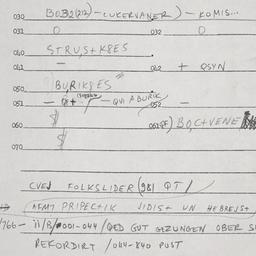 030 BOB2(212)-CUKERVANER)-KOMIS...
031 0 032 0
040 STRUS+K8ES
041 - 042 + QSYN
050 BURIK8ES
051 - 8+ - QVI A BURIK 052 -
060 061 BO,C+VENE
070
CVEJ FOLKSLIDER (98) QT /
AFMY PRIPECTIK JIDIS+ UN HEBREJS+
/766- II/8/0001-044 /QED GUT GEZUNGEN OBER S
REKORDIRT /044-840 PUST